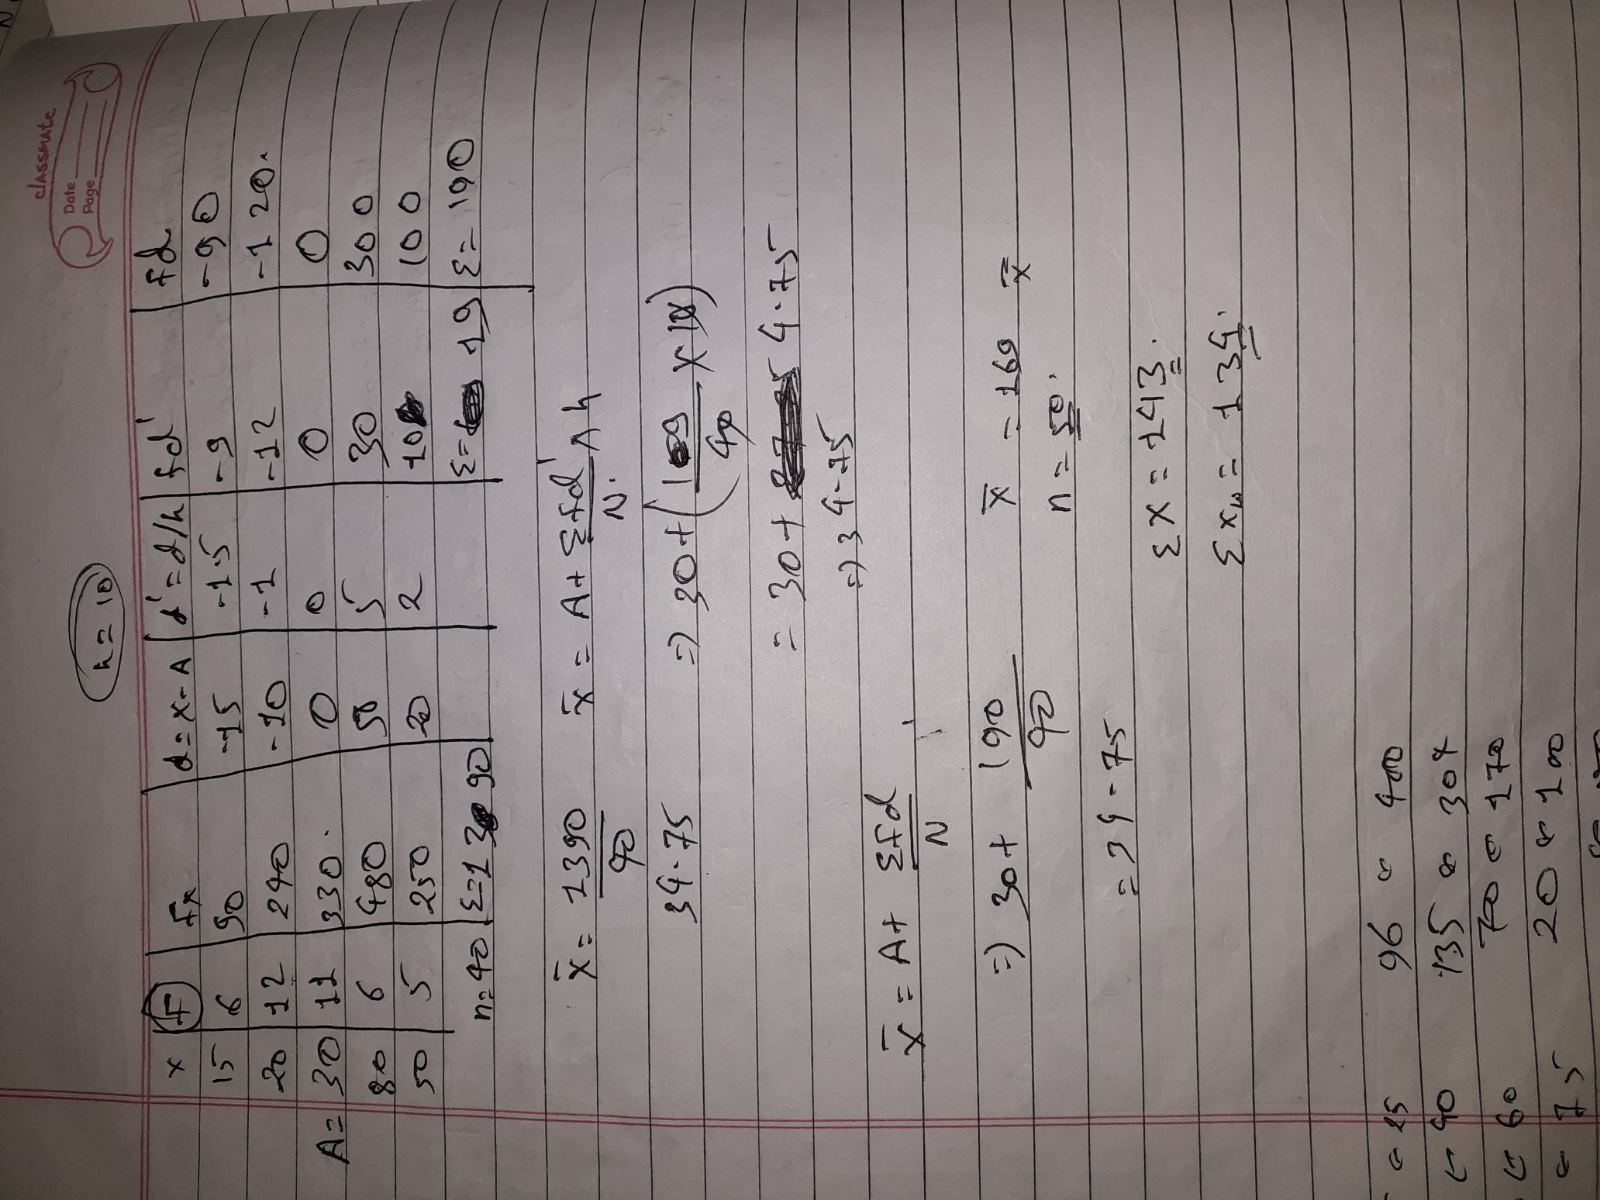 classmate
Date
Page
h = 10
x | F | Fx | d = x - A | d' = d/h | fd' | fd
15 | 6 | 90 | -15 | -1.5 | -9 | -90
20 | 12 | 240 | -10 | -1 | -12 | -120.
A = 30 | 11 | 330. | 0 | 0 | 0 | 0
80 | 6 | 480 | 50 | 5 | 30 | 300
50 | 5 | 250 | 20 | 2 | 10 | 100
n = 40 | Σ = 1390 | Σ = 19 | Σ = 190
x̄ = 1390/40 x̄ = A + Σfd'/N. h
34.75 => 30 + ( /40 × 10)
= 30 + 4.75
=> 34.75
x̄ = A + Σfd/N
=> 30 + 190/40 x̄ = 169 x̄
n = 50.
= 34.75
Σx = 243.
Σxw = 134.
= 25 96 400
40 135 304
60 70 170
75 20 100